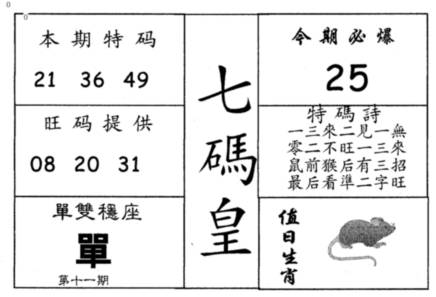 本期特码
21 36 49
旺码提供
08 20 31
單雙穩座
單
第十一期
七碼皇
今期必爆
25
特碼詩
一三來二見一無
零二不旺一三來
鼠前猴后有三招
最后看準二字旺
值日生肖